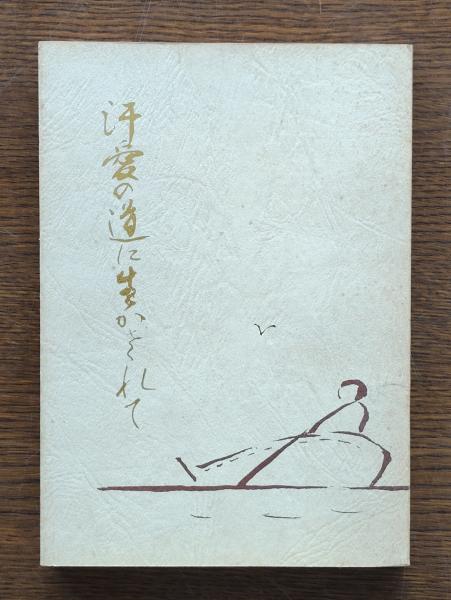 汗愛の道に生かされて